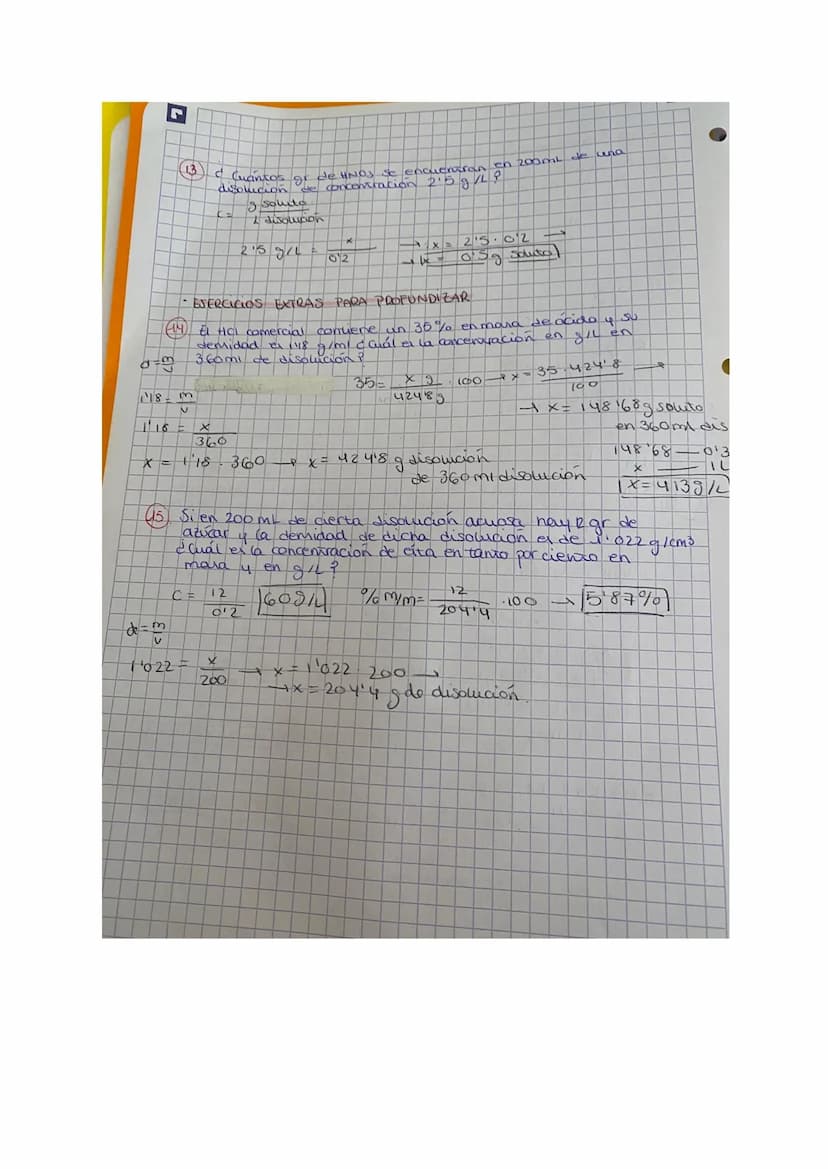 13 ¿ Cuántos gr de HNO3 se encuentran en 200mL de una
disolución de concentración 2'5 g/L?
C= g soluto / L disolución
2'5 g/L = x / 0'2 → x = 2'5 · 0'2 →
→ x = 0'5 g soluto
· EJERCICIOS EXTRAS PARA PROFUNDIZAR
14 El HCl comercial contiene un 35% en masa de ácido y su
densidad es 1'18 g/ml ¿cuál es la concentración en g/L en
360ml de disolución?
d = m / v
35 = x g / 424'8 g · 100 → x = 35 · 424'8 / 100 →
1'18 = m / v
→ x = 148'68 g soluto
en 360ml dis
1'18 = x / 360
x = 1'18 · 360 → x = 424'8 g disolución
de 360ml disolución
148'68 — 0'3
x — 1L
x = 413 g/L
15 Si en 200 mL de cierta disolución acuosa hay 12 gr de
azúcar y la densidad de dicha disolución es de 1.022 g/cm3
¿cuál es la concentración de esta en tanto por ciento en
masa y en g/L?
C = 12 / 0'2 60 g/L % m/m = 12 / 204'4 · 100 → 5'87%
d = m / v
1'022 = x / 200 → x = 1'022 · 200 →
→ x = 204'4 g de disolución